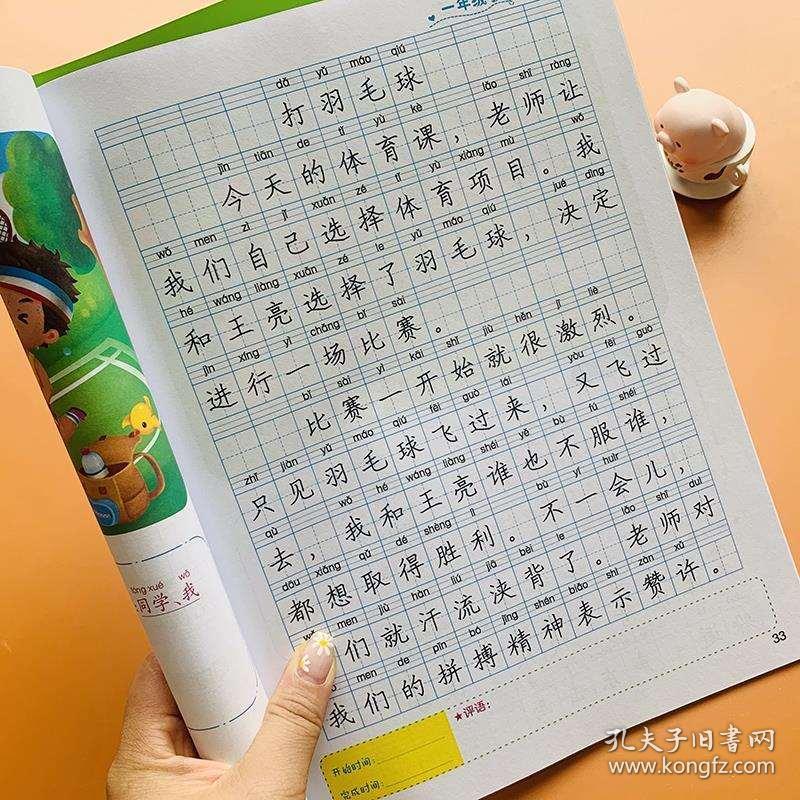 一年级
dǎ yǔ máo qiú
打羽毛球
jīn tiān de tǐ yù kè lǎo shī ràng
今天的体育课，老师让
wǒ men zì jǐ xuǎn zé tǐ yù xiàng mù wǒ
我们自己选择体育项目。我
hé wáng liàng xuǎn zé le yǔ máo qiú jué dìng
和王亮选择了羽毛球，决定
jìn xíng yì chǎng bǐ sài
进行一场比赛。
bǐ sài yì kāi shǐ jiù hěn jī liè
比赛一开始就很激烈。
zhǐ jiàn yǔ máo qiú fēi guò lái yòu fēi guò
只见羽毛球飞过来，又飞过
qù wǒ hé wáng liàng shéi yě bù fú shéi
去，我和王亮谁也不服谁，
dōu xiǎng qǔ dé shèng lì bù yí huìr
都想取得胜利。不一会儿，
men jiù hàn liú jiā bèi le lǎo shī duì
们就汗流浃背了。老师对
men de pīn bó jīng shén biǎo shì zàn xǔ
我们的拼搏精神表示赞许。
33
★评语：
开始时间：
完成时间：
tóng xué wǒ
同学、我
孔夫子旧书网
www.kongfz.com